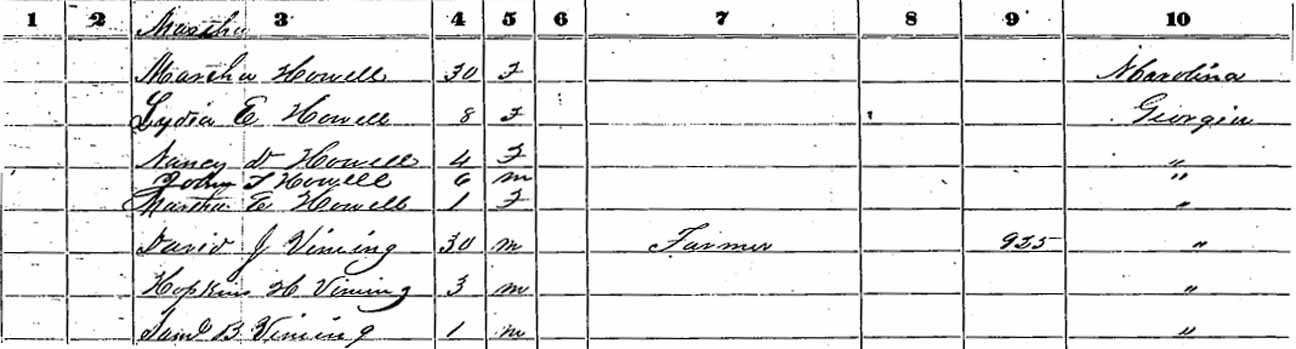 1 2 3 4 5 6 7 8 9 10
Martha
Martha Howell 30 F N Carolina
Lydia E Howell 8 F Georgia
Nancy D Howell 4 F "
John T Howell 6 m "
Martha E Howell 1 F "
David J Vining 30 m Farmer 925 "
Hopkins H Vining 3 m "
Saml B Vining 1 m "